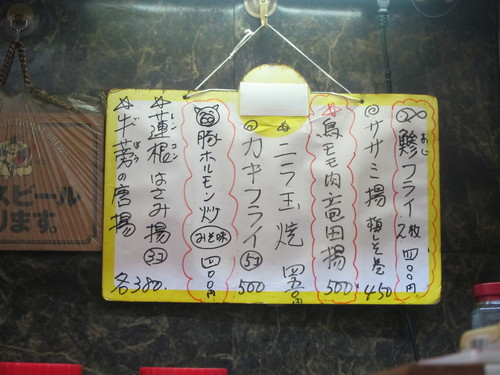 鯵フライ 2枚 四〇〇円
あじ
ササミ揚 梅しそ巻 450
鳥モモ肉竜田揚 500
ニラ玉焼 四五〇円
カキフライ 5コ 500
豚ホルモン炒 みそ味 四〇〇円
蓮根はさみ揚 3コ
レンコン
牛蒡の唐揚
ごぼう
各380.
スビール
ります。